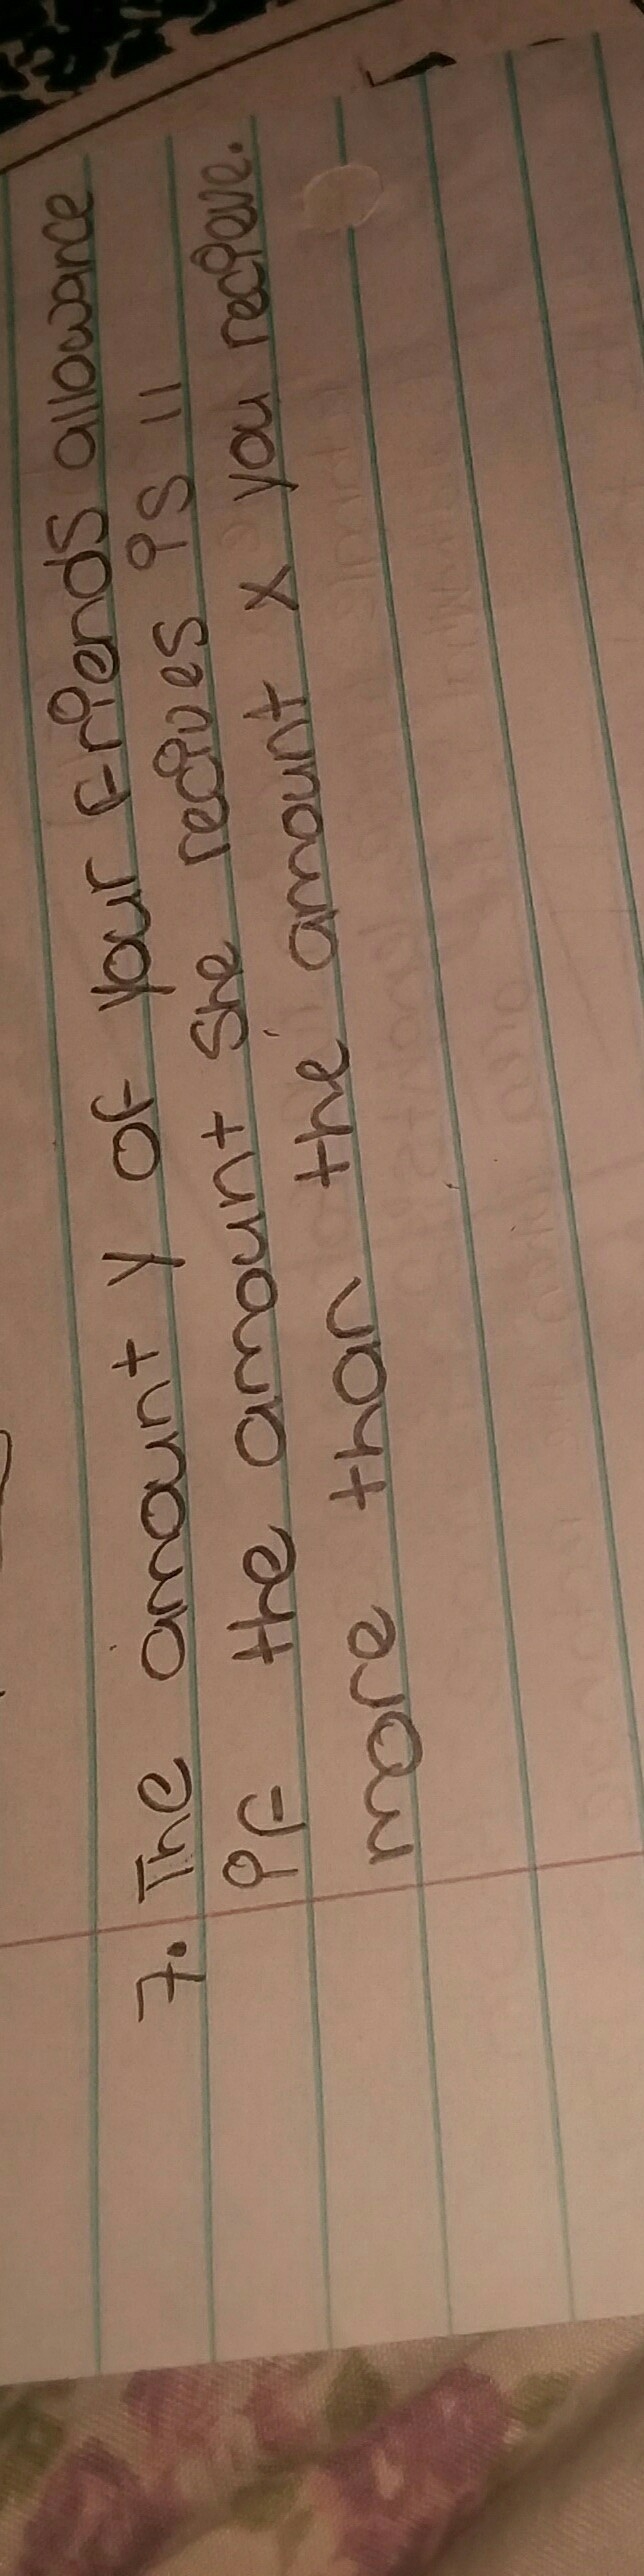 7. The amount y of your friends allowance
if the amount she recives is 11
more than the amount x you recieve.